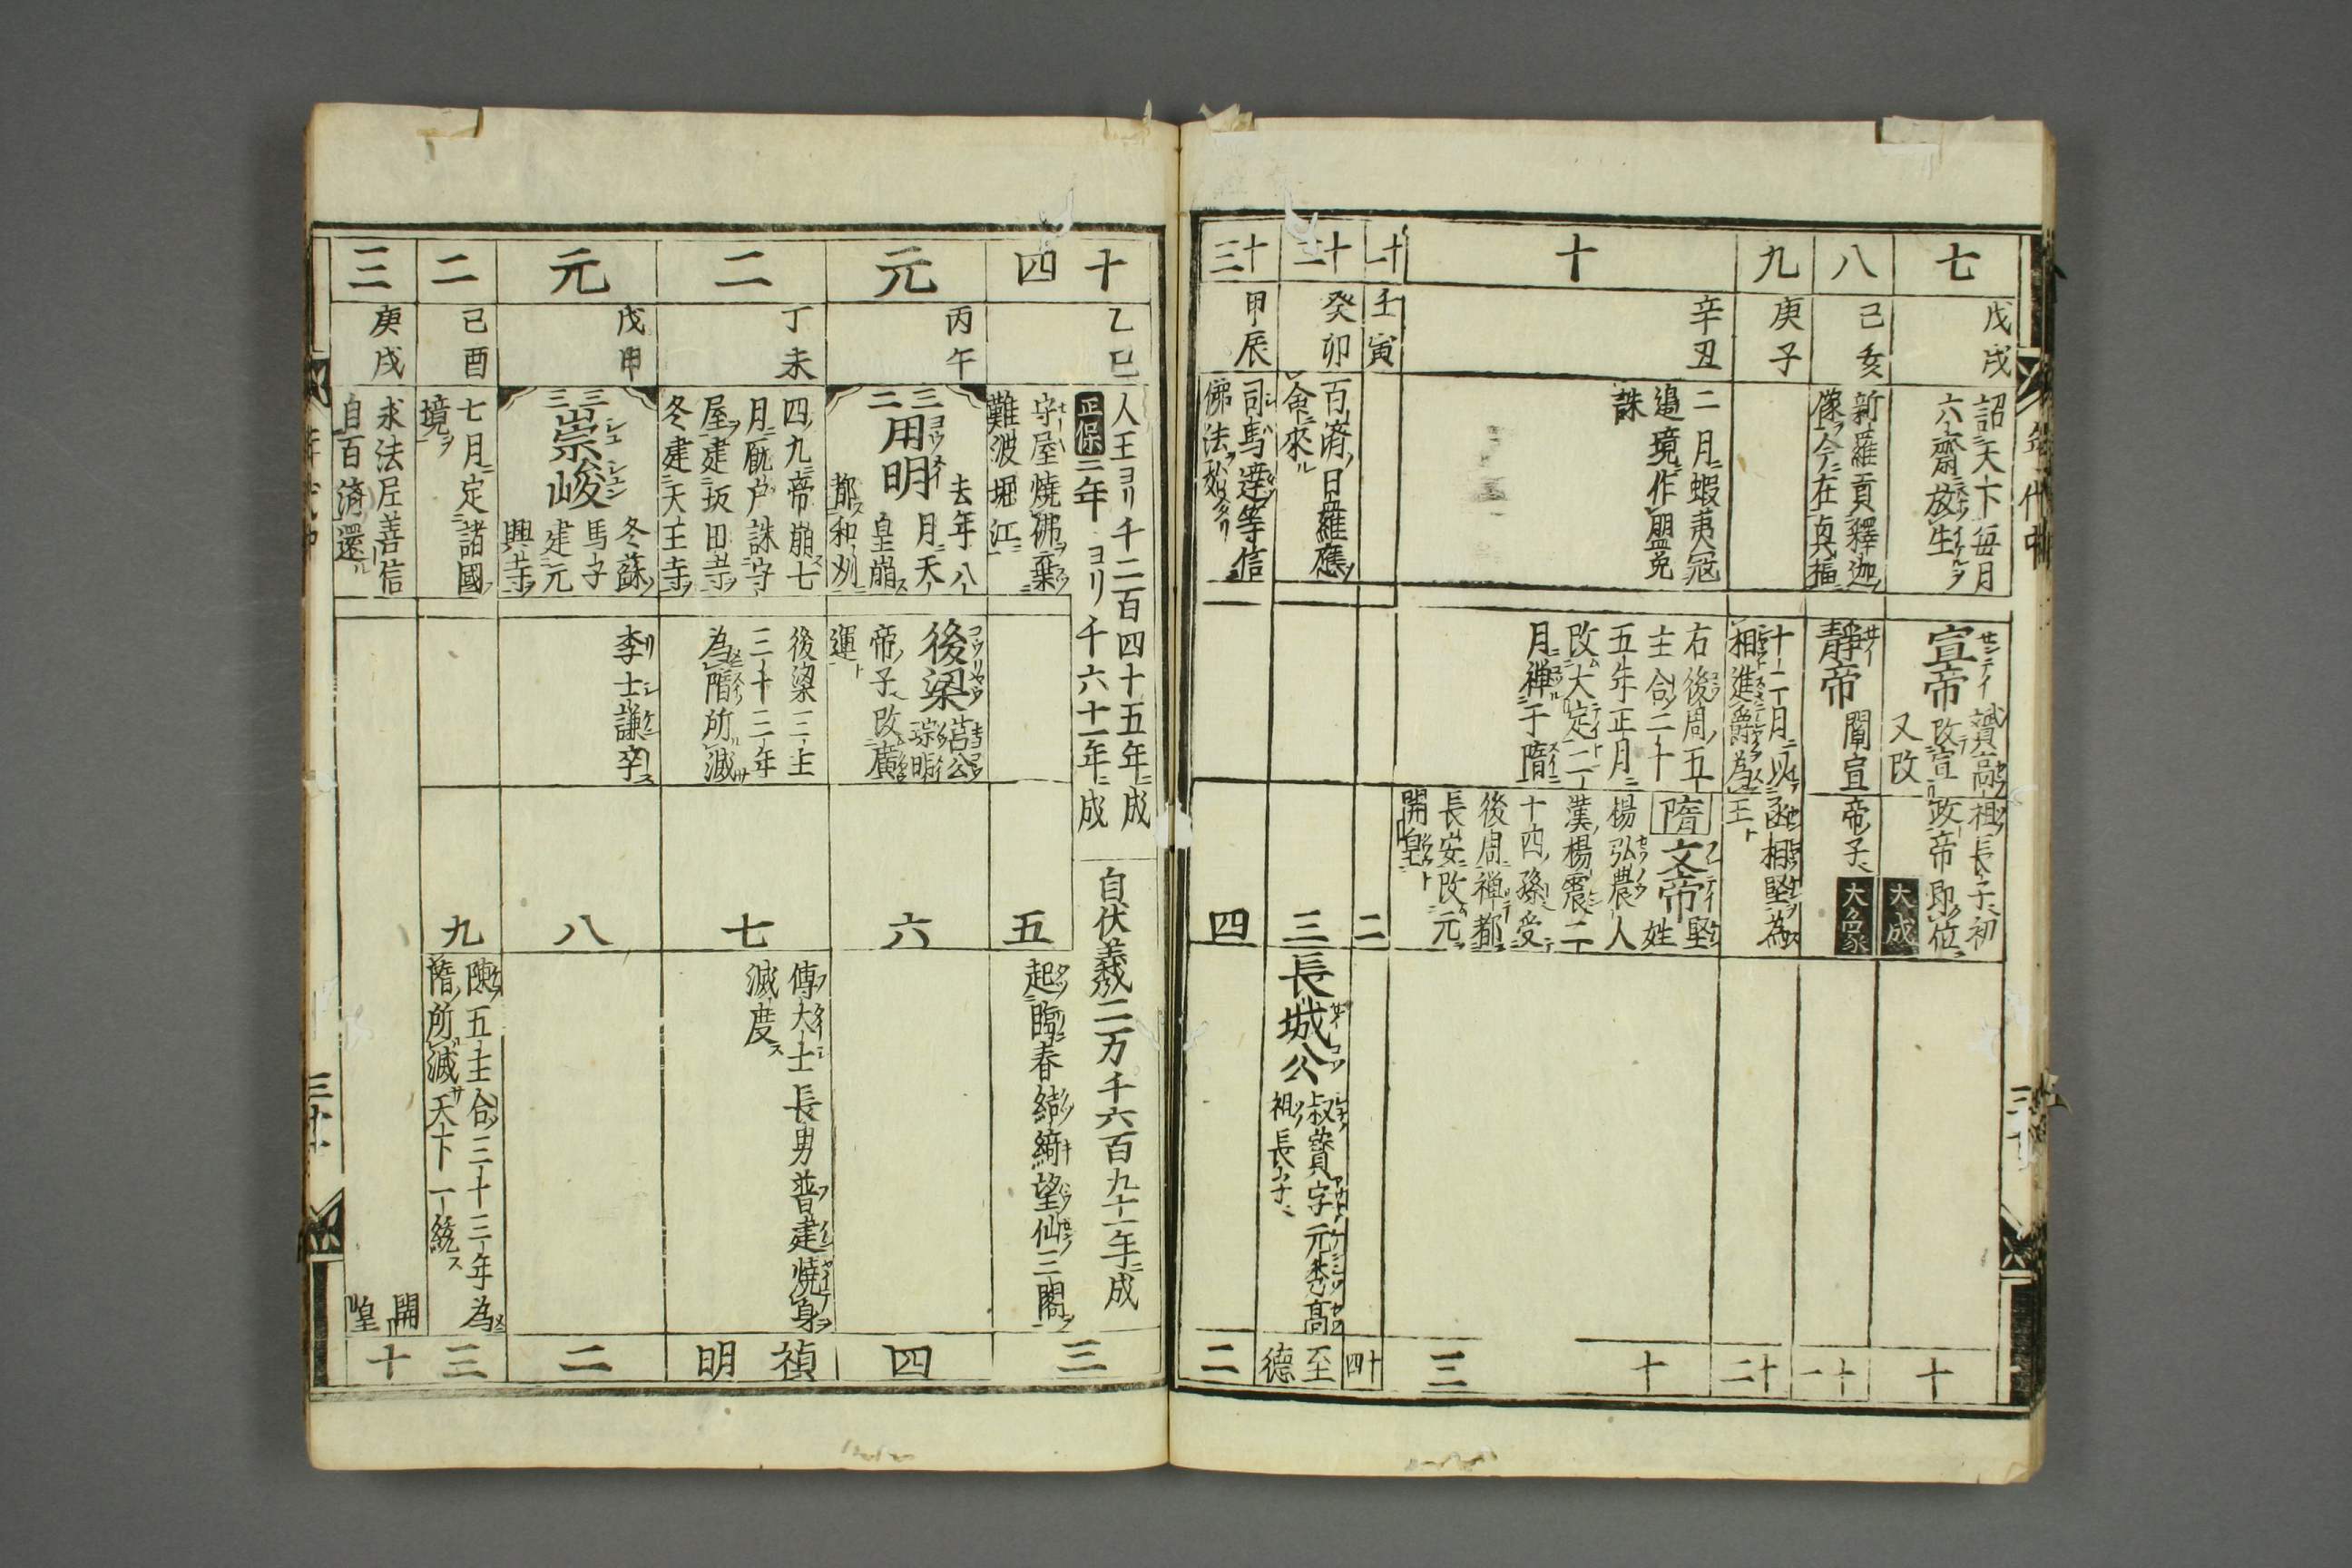 七
戊戌
詔天下毎月
六齋放生
宣帝
贇高祖長子初
改宣政帝即位
又改
大成
十
八
己亥
新羅貢釋迦
像今在真福
靜帝
闡宣帝子
大象
十一
九
庚子
十二月以丞相堅為
相進爵為王
十二
十
辛丑
二月蝦夷冦
邉境作盟免
誅
右後周五
主合二十
五年正月
改大定二
月禅于隋
隋
文帝
堅姓
楊弘農人
漢楊震二
十四孫受
後周禅都
長安改元
開皇
十三
十一
壬寅
二
十四
十二
癸卯
百濟日羅應
命來
三
長城公
叔寶字元秀高
祖長子
至德
十三
甲辰
司馬達等信
佛法
四
二
十四
乙巳
人王ヨリ千二百四十五年ニ成
正保二年ヨリ千六十一年ニ成
自伏羲二万千六百九十一年ニ成
守屋燒佛棄
難波堀江
五
起臨春結綺望仙三閣
三
元
丙午
三二
用明
去年八
月天
皇崩
都和刕
後梁
莒公
琮明
帝子改廣
運
六
四
二
丁未
四九帝崩七
月厩戸誅守
屋建坂田寺
冬建天王寺
後梁三主
三十三年
為隋所滅
七
傅大士長男普建燒身
滅度
禎明
元
戊申
三三
崇峻
冬蘇
馬子
建元
興寺
李士謙卒
八
二
二
己酉
七月定諸國
境
九
陳五主合三十三年為
隋所滅天下一統
三
三
庚戌
求法尼善信
自百濟還
開皇
十